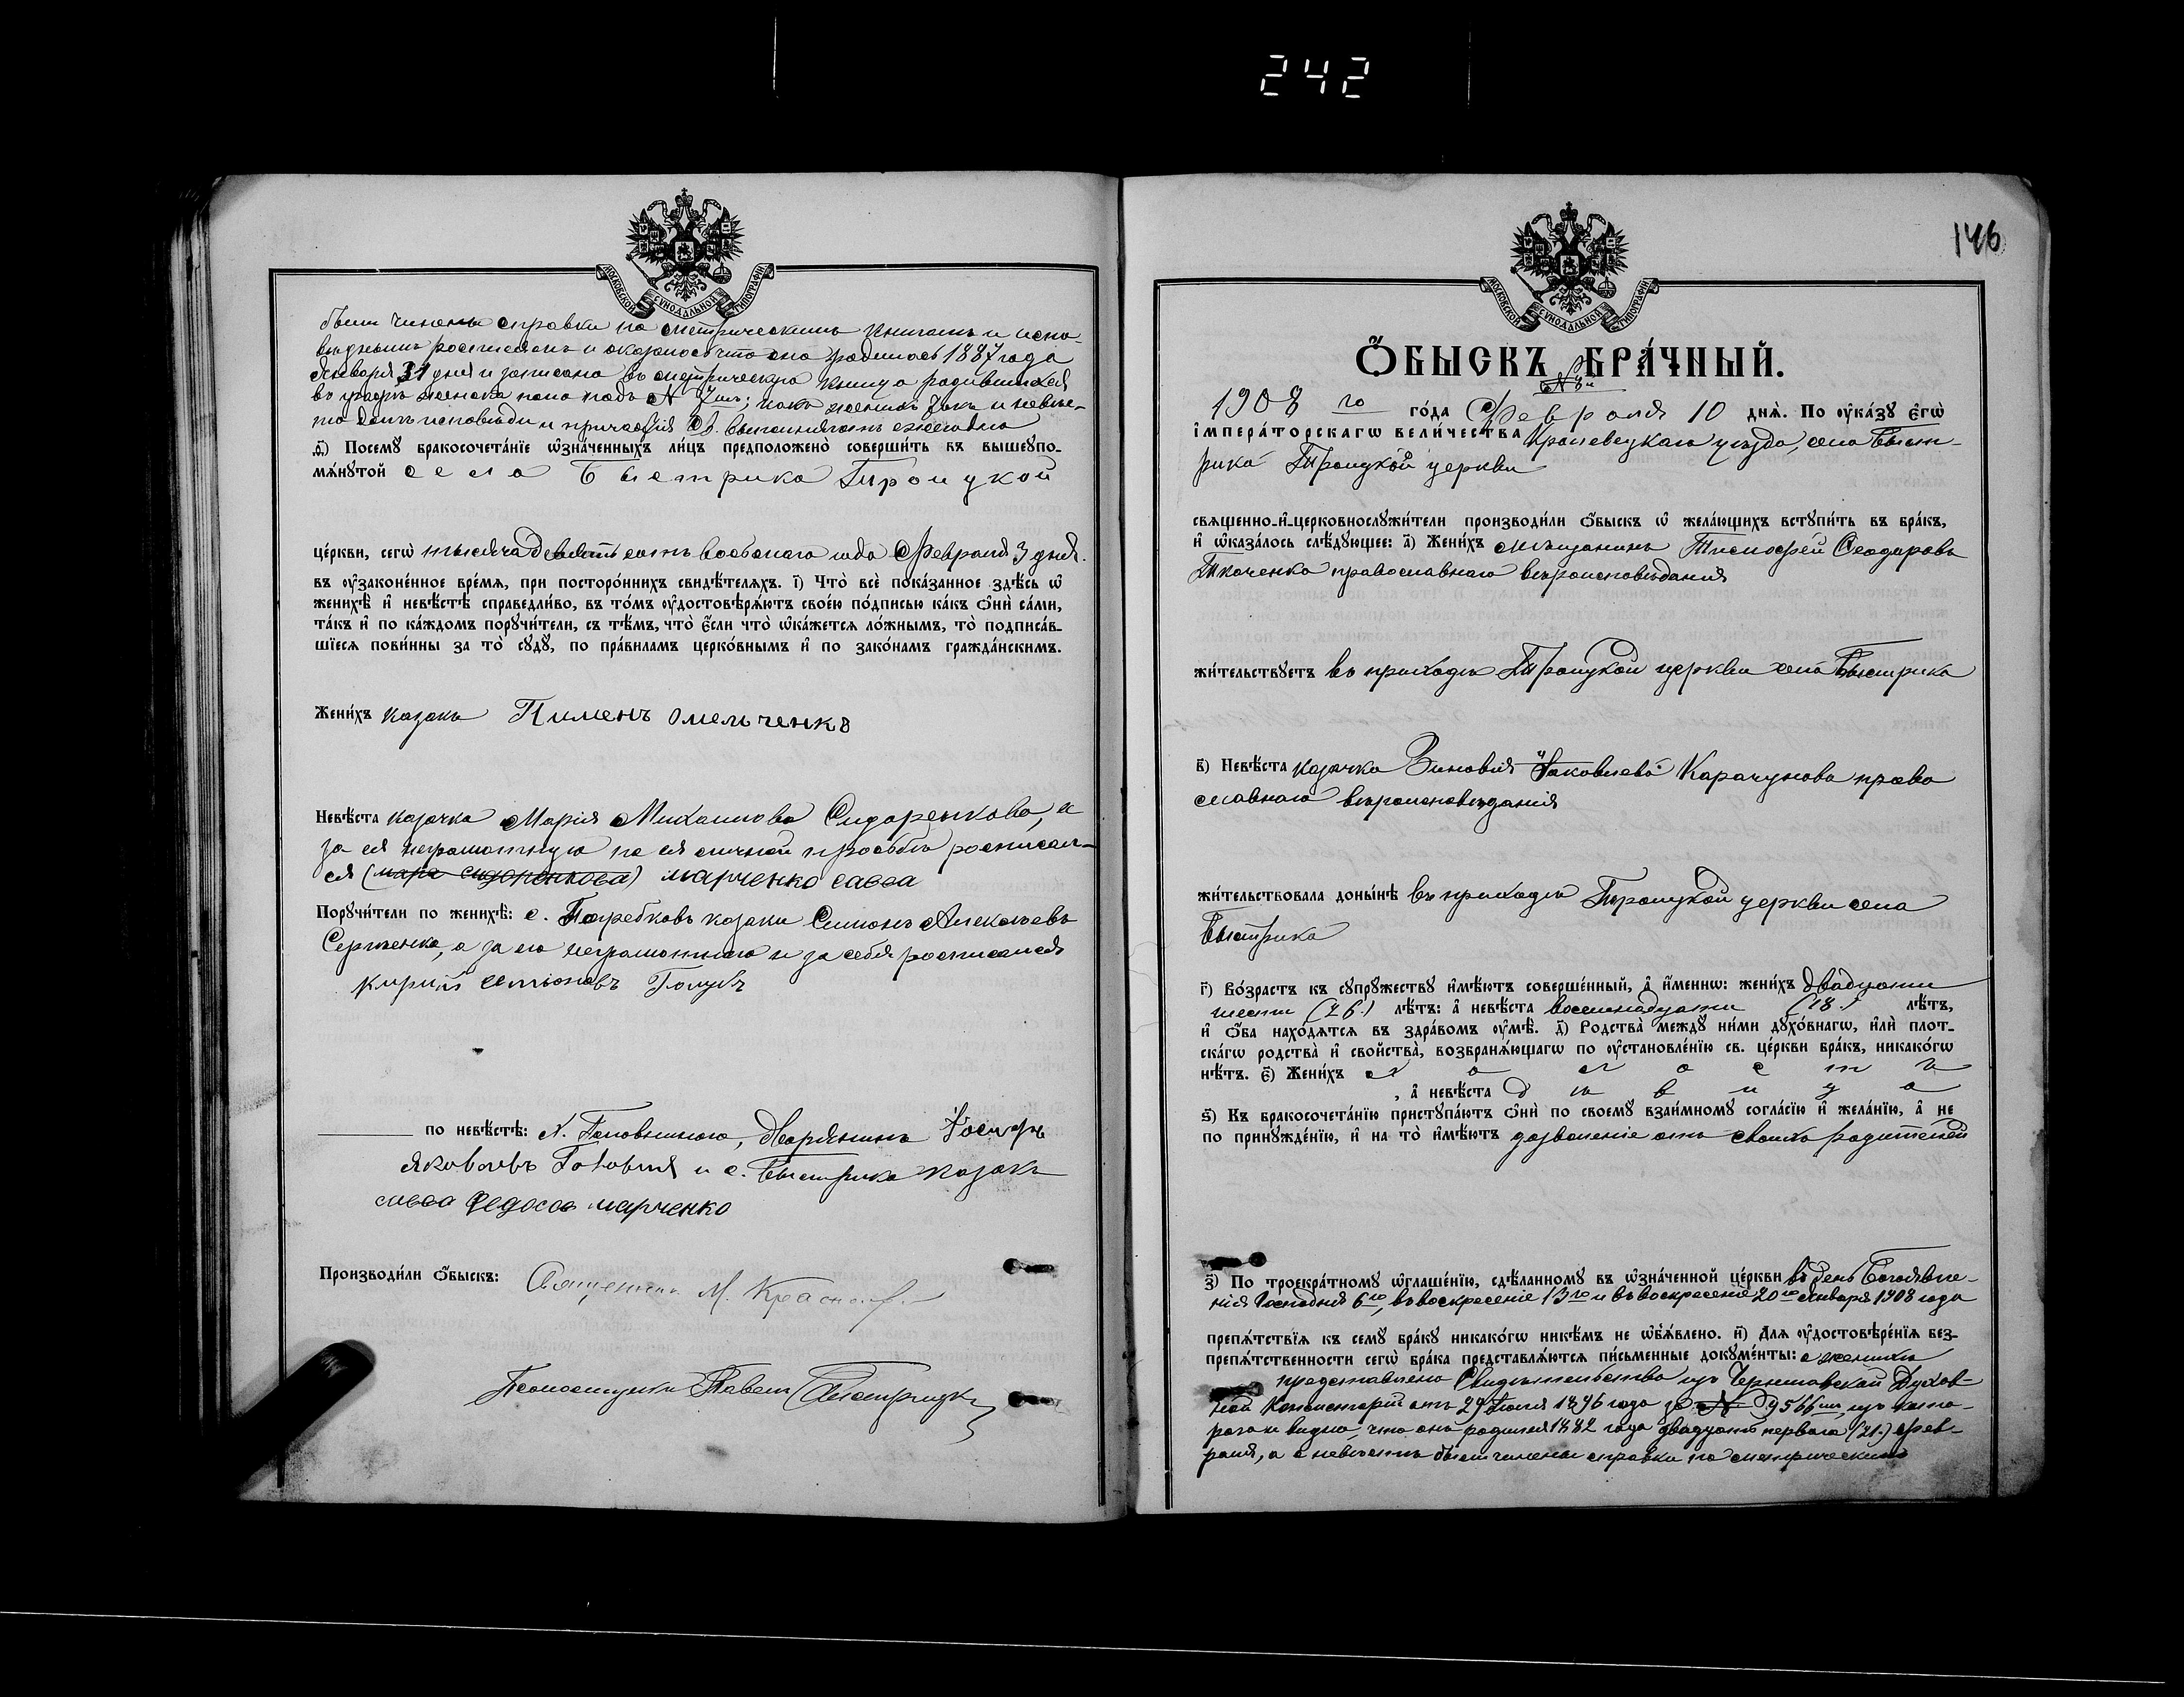 242
были чинены справки по метрическимъ книгамъ и испо-
вѣднымъ росписямъ и оказалось что она родилась 1887 года
Января 31 дня и записана въ метрическую книгу родившихся
въ графѣ женска пола подъ № 7мъ; какъ женихъ такъ и невѣс-
та долгъ исповѣди и причастія Св. выполняютъ ежегодно
ѳ҃) Посемꙋ бракосочета́нїе ѡ҆зна́ченныхъ ли́цъ предположено̀ соверши́ть въ вышеꙋпо-
мѧ́нꙋтой села Быстрика Троицкой
це́ркви, сегѡ̀ тысяча девятьсотъ восьмого года Февраля 3 дня.
въ ᲂу҆законе́нное вре́мѧ, при посторо́ннихъ свидѣ́телѧхъ. і҃) Что̀ всѐ пока́занное здѣ́сь ѡ҆
женихѣ̀ и҆ невѣ́стѣ справедли́во, въ то́мъ ᲂу҆достовѣрѧ́ютъ свое́ю по́дписью ка́къ ѻ҆нѝ са́ми,
та́къ и҆ по ка́ждомъ порꙋчи́тели, съ тѣ́мъ, что̀ є҆́сли что̀ ѡ҆ка́жетсѧ ло́жнымъ, то̀ подписа́в-
шїесѧ пови́нны за то̀ сꙋдꙋ̀, по пра́виламъ церко́внымъ и҆ по зако́намъ гражда́нскимъ.
Жени́хъ казакъ Пименъ Омельченко
Невѣ́ста казачка Марія Михаилова Сидоренкова, а
за ея неграмотную по ея личной просьбѣ росписал-
ся (мара сидоренкова) марченко савва
Порꙋчи́тели по женихѣ̀: с. Погребковъ казаки Симонъ Алексѣевъ
Сергѣенко, а за его неграмотнаго и за себя росписался
Кирилъ Семіоновъ Голубъ
по невѣ́стѣ: х. Головничого, дворянинъ Іосифъ
Яковлевъ Головня и с. Быстрика казакъ
савва Федосов марченко
Производи́ли ѻ҆́быскъ: Священник М.
Псаломщикъ Павелъ
МОСКОВСКОЙ СѴНОДАЛЬНОЙ ТИПОГРАФІИ
146
МОСКОВСКОЙ СѴНОДАЛЬНОЙ ТИПОГРАФІИ
Ѻ҆́БЫСКЪ БРА́ЧНЫЙ.
№ 8й
1908 го го́да Февраля 10 днѧ̀. По ᲂу҆ка́зꙋ Є҆гѡ̀
І҆мпера́торскагѡ Вели́чества Кролевецкаго уѣзда, села Быст-
рика Троицкой церкви
свѧще́нно-и҆-церковнослꙋжи́тели производи́ли ѻ҆́быскъ ѡ҆ жела́ющихъ встꙋпи́ть въ бра́къ,
и҆ ѡ҆каза́лось слѣ́дꙋющее: а҃) Жени́хъ мѣщанинъ Тимофей Феодоровъ
Ткаченко православнаго вѣроисповѣданія
жи́тельствꙋетъ въ приходѣ Троицкой церкви села Быстрика
в҃) Невѣ́ста казачка Зиновія Іаковлева Карачунова право
славнаго вѣроисповѣданія
жи́тельствовала доны́нѣ въ приходѣ Троицкой церкви села
Быстрика
г҃) Во́зрастъ къ сꙋпрꙋ́жествꙋ и҆мѣ́ютъ соверше́нный, а҆ и҆́меннѡ: жени́хъ двадцати
шести (26.) лѣ́тъ: а҆ невѣ́ста восемнадцати (18.) лѣ́тъ,
и҆ ѻ҆́ба нахо́дѧтсѧ въ здра́вомъ ᲂу҆мѣ̀. д҃) Родства̀ междꙋ̀ ни́ми дꙋхо́внагѡ, и҆лѝ плот-
ска́гѡ родства̀ и҆ свойства̀, возбранѧ́ющагѡ по ᲂу҆становле́нїю св. це́ркви бра́къ, никако́гѡ
нѣ́тъ. є҃) Жени́хъ холостъ
, а҆ невѣ́ста дѣвица
ѕ҃) Къ бракосочета́нїю пристꙋпа́ютъ ѻ҆нѝ по своемꙋ̀ взаи́мномꙋ согла́сїю и҆ жела́нїю, а҆ не
по принꙋжде́нїю, и҆ на то̀ и҆мѣ́ютъ дозволеніе отъ своихъ родителей
з҃) По троекра́тномꙋ ѡ҆глаше́нїю, сдѣ́ланномꙋ въ ѡ҆зна́ченной це́ркви въ день Богоявле-
нія Господня 6го, въ воскресеніе 13го и въ воскресеніе 20го Января 1908 года
препѧ́тствїѧ къ семꙋ̀ бра́кꙋ никако́гѡ никѣ́мъ не ѡ҆б̾ѧ́влено. и҃) Длѧ ᲂу҆достовѣре́нїѧ без-
препѧ́тственности сегѡ̀ бра́ка представлѧ́ютсѧ пи́сьменные докꙋме́нты: о женихѣ
представлено Свидѣтельство изъ Черниговской Духов-
ной Консисторіи отъ 29 Іюля 1896 года за № 9566мъ, изъ кото-
раго и видно, что онъ родился 1882 года двадцать перваго (21.) Фев-
раля, а о невѣстѣ были чинены справки по метрическимъ